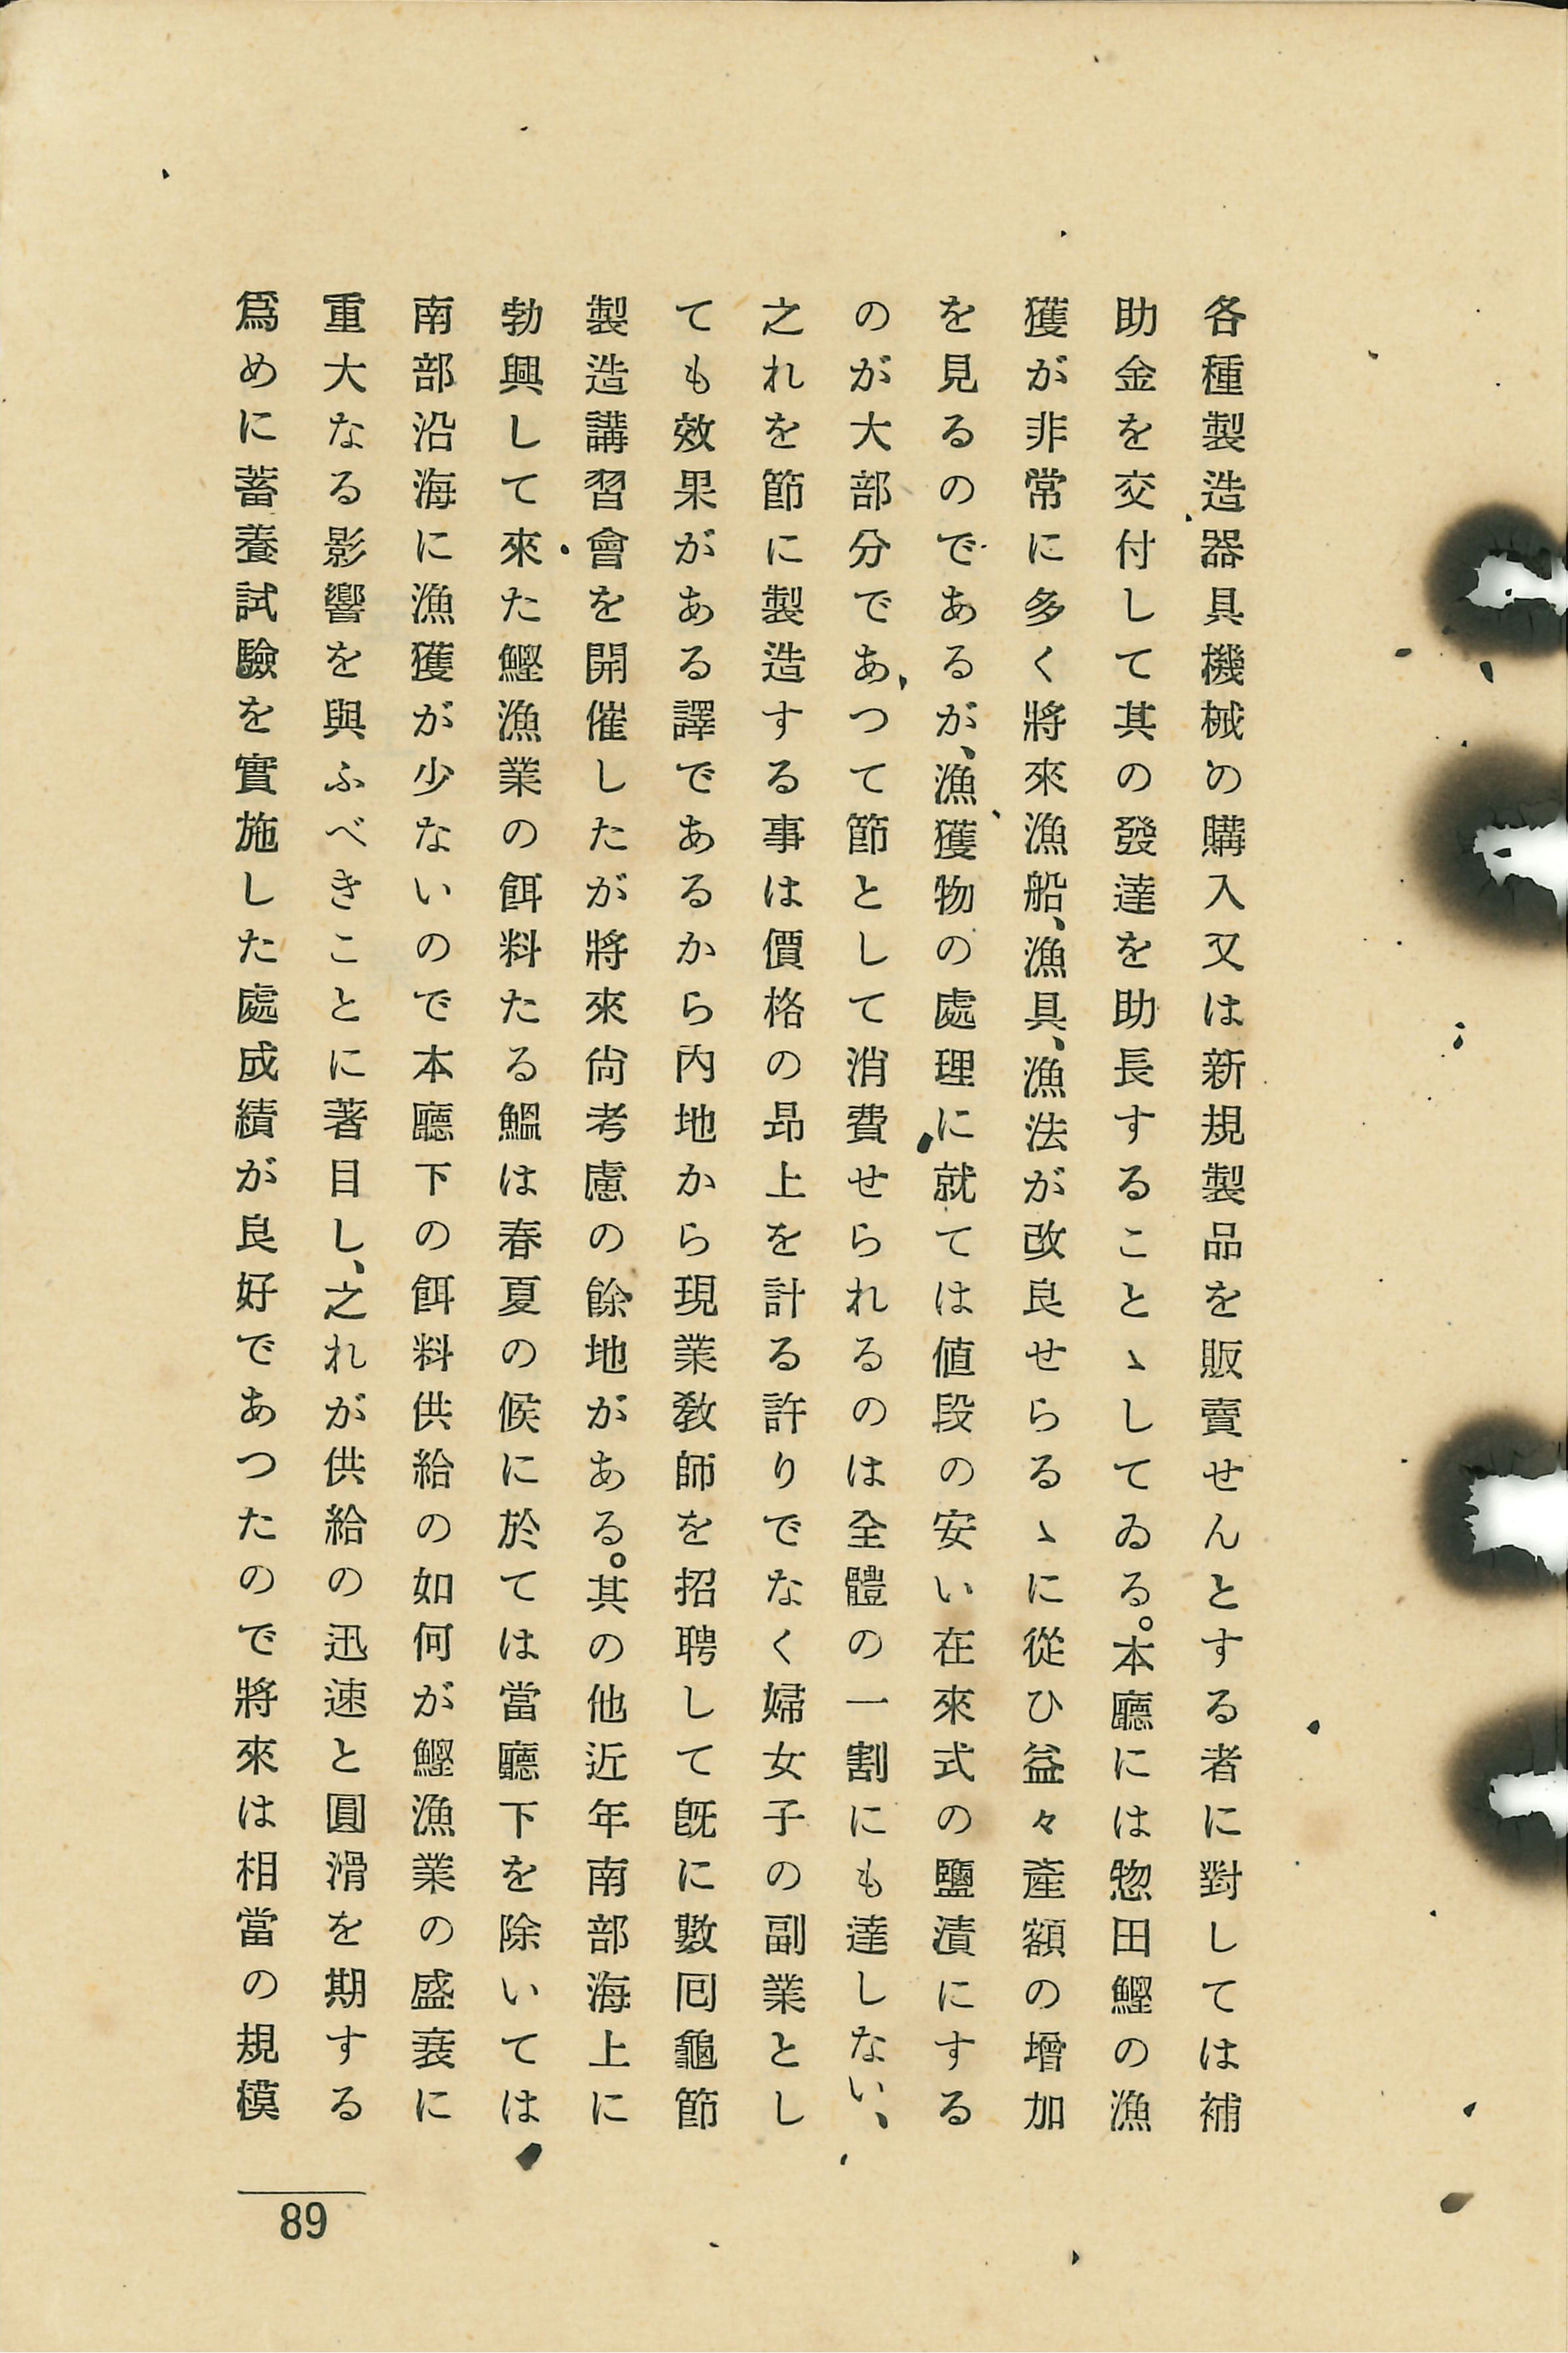 各種製造器具機械の購入又は新規製品を販賣せんとする者に對しては補
助金を交付して其の發達を助長することゝしてゐる。本廳には惣田鰹の漁
獲が非常に多く將來漁船、漁具、漁法が改良せらるゝに從ひ益々產額の增加
を見るのであるが、漁獲物の處理に就ては値段の安い在來式の鹽漬にする
のが大部分であつて節として消費せられるのは全體の一割にも達しない、
之れを節に製造する事は價格の昂上を計る許りでなく婦女子の副業とし
ても效果がある譯であるから內地から現業敎師を招聘して旣に數囘龜節
製造講習會を開催したが將來尙考慮の餘地がある。其の他近年南部海上に
勃興して來た鰹漁業の餌料たる鰮は春夏の候に於ては當廳下を除いては
南部沿海に漁獲が少ないので本廳下の餌料供給の如何が鰹漁業の盛衰に
重大なる影響を與ふべきことに著目し、之れが供給の迅速と圓滑を期する
爲めに蓄養試驗を實施した處成績が良好であつたので將來は相當の規模
89